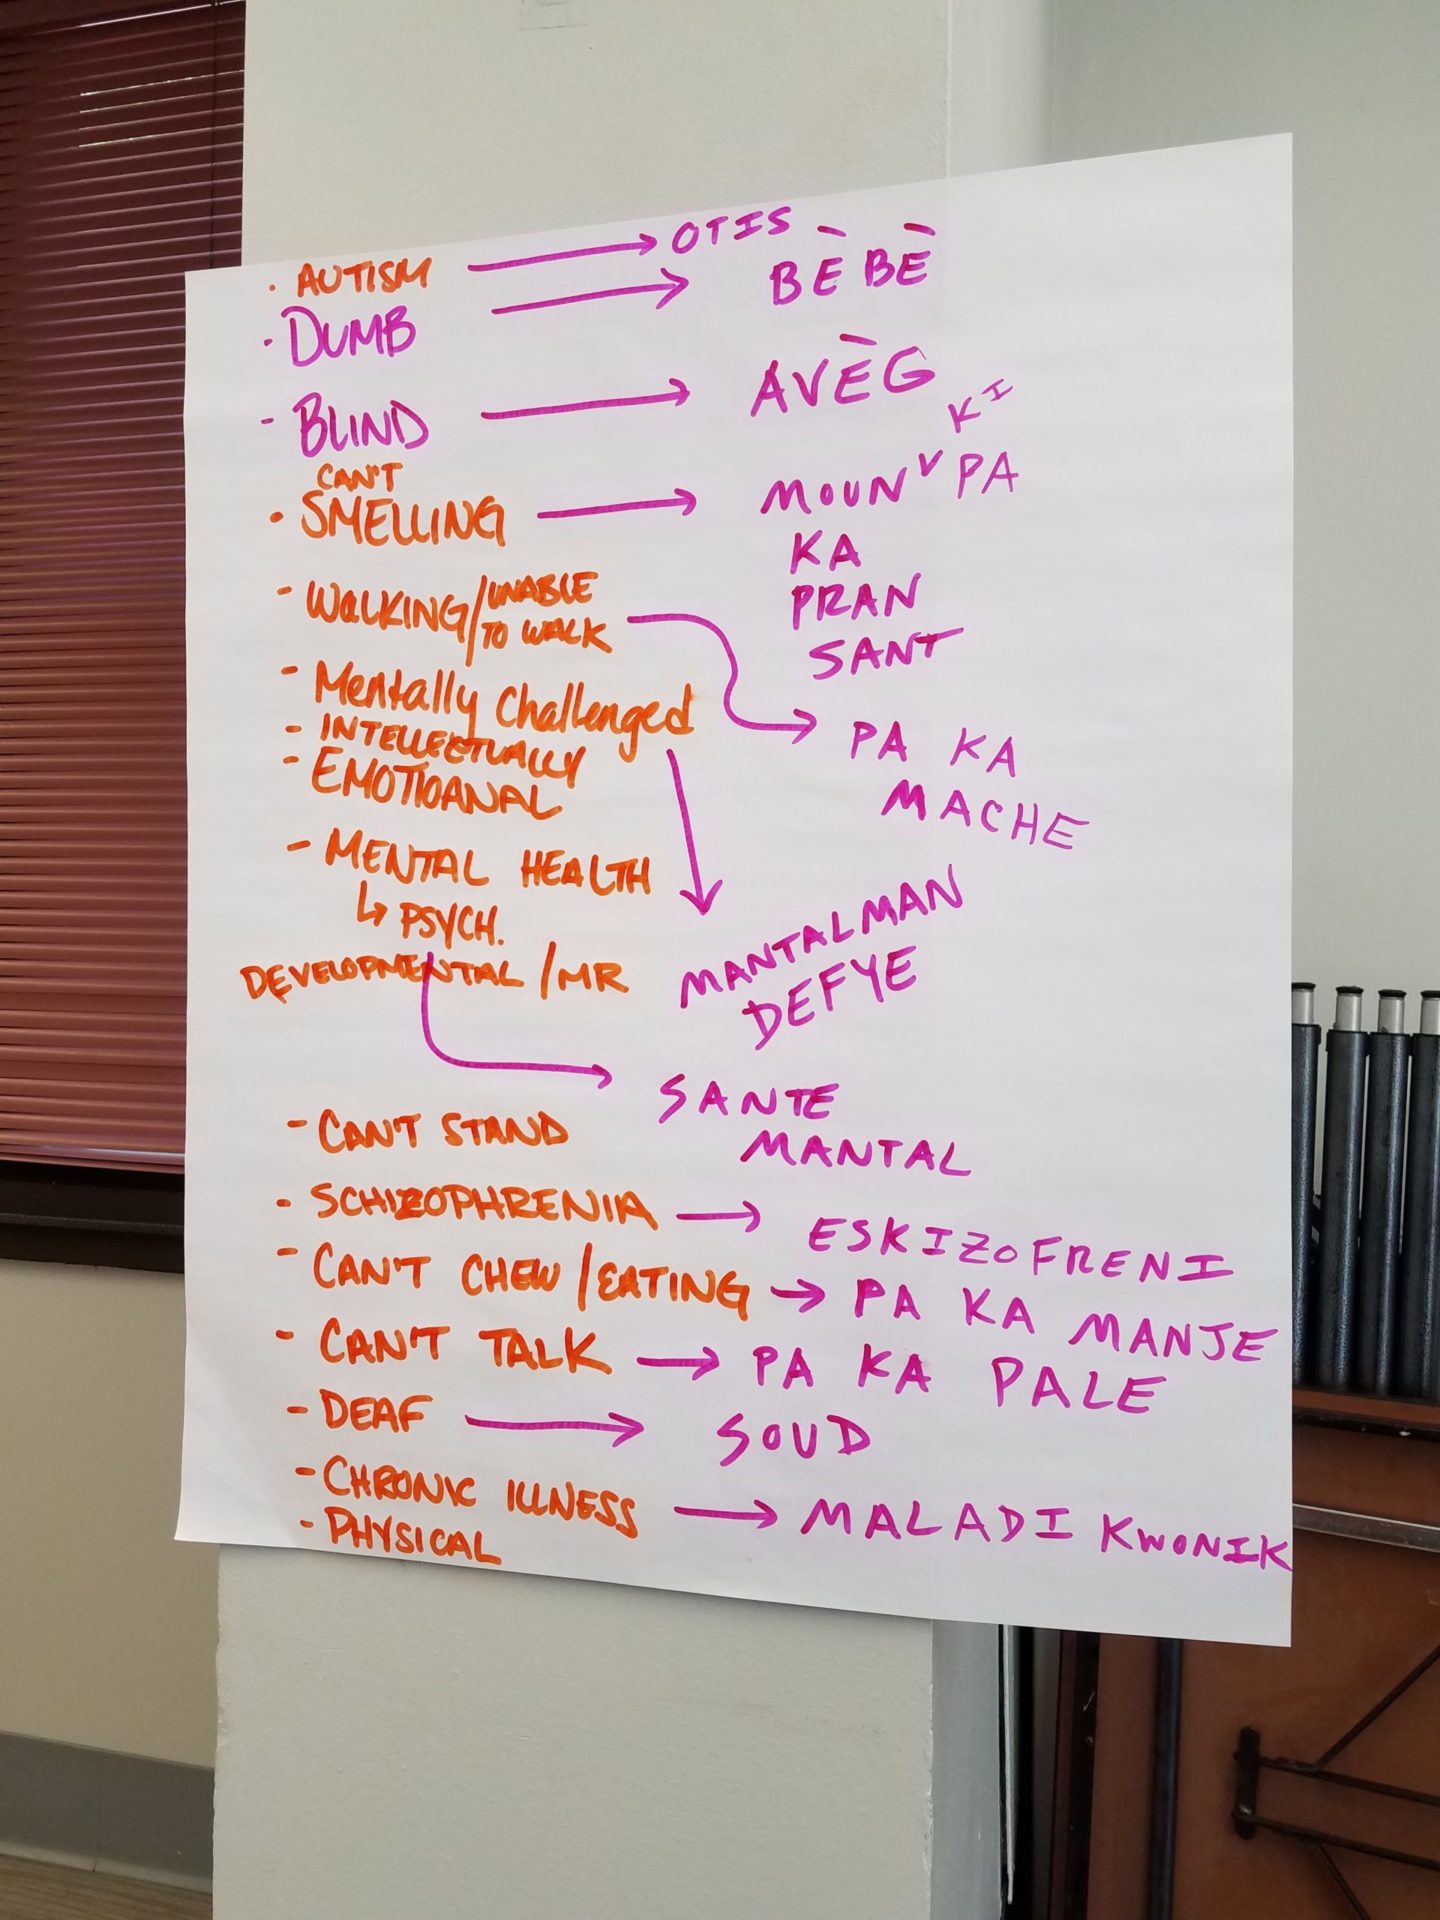 · AUTISM → OTIS
· DUMB → BÈBÈ
- BLIND → AVÈG
CAN'T KI
· SMELLING → MOUN ∨ PA
KA
PRAN
SANT
- WALKING/UNABLE
TO WALK → PA KA
MACHE
- Mentally Challenged → MANTALMAN
DEFYE
- INTELLECTUALLY
- EMOTIOANAL
- MENTAL HEALTH
↳ PSYCH. → SANTE
MANTAL
DEVELOPMENTAL / MR
- CAN'T STAND
- SCHIZOPHRENIA → ESKIZOFRENI
- CAN'T CHEW / EATING → PA KA MANJE
- CAN'T TALK → PA KA PALE
- DEAF → SOUD
- CHRONIC ILLNESS → MALADI KWONIK
- PHYSICAL